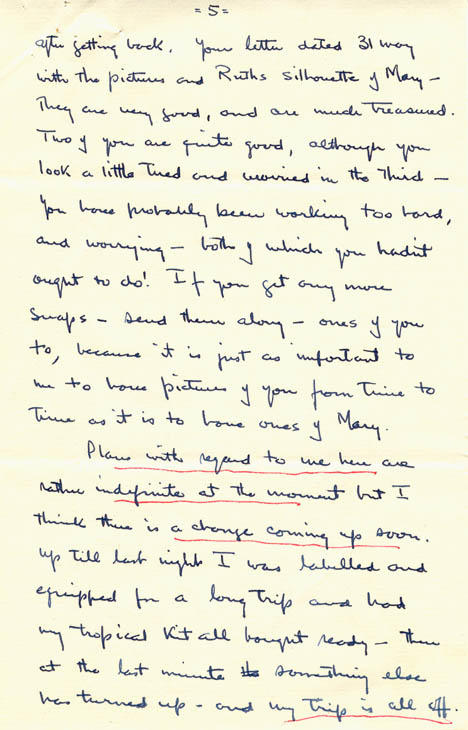 = 5 =
after getting back. Your letter dated 31 may
with the pictures and Ruths silhouette of Mary -
They are very good, and are much treasured.
Two of you are quite good, although you
look a little tired and worried in the third -
You have probably been working too hard,
and worrying - both of which you hadn't
ought to do! If you get any more
snaps - send them along - ones of you
to, because it is just as important to
me to have pictures of you from time to
time as it is to have ones of Mary.
Plans with regard to me here are
rather indefinite at the moment but I
think there is a change coming up soon.
up till last night I was labelled and
equipped for a long trip and had
my tropical kit all bought ready - then
at the last minute something else
has turned up - and my trip is all off.